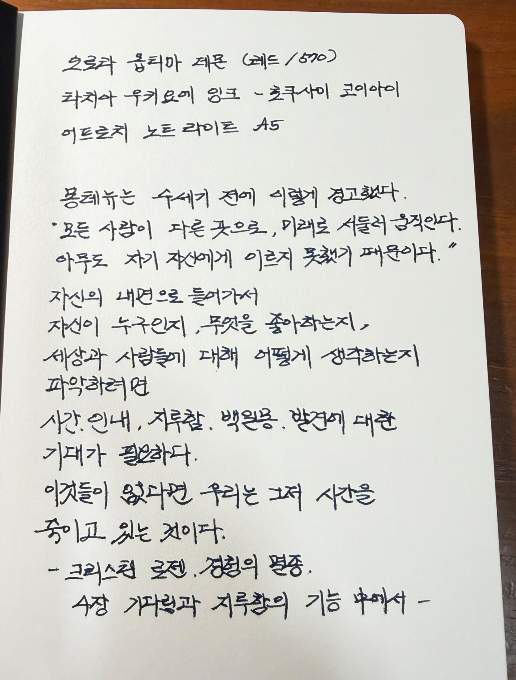 오로라 옵티마 데몬 (레드 / 570)
타치아 우키요에 잉크 - 호쿠사이 코이아이
어프로치 노트 라이트 A5
몽테뉴는 수세기 전에 이렇게 경고했다.
"모든 사람이 다른 곳으로, 미래로 서둘러 움직인다.
아무도 자기 자신에게 이르지 못했기 때문이다."
자신의 내면으로 들어가서
자신이 누구인지, 무엇을 좋아하는지,
세상과 사람들에 대해 어떻게 생각하는지
파악하려면
시간. 인내, 지루함. 백일몽. 발견에 대한
기대가 필요하다.
이것들이 없다면 우리는 그저 시간을
죽이고 있는 것이다.
- 크리스틴 로젠. 경험의 멸종.
4장 기다림과 지루함의 기능 中에서 -